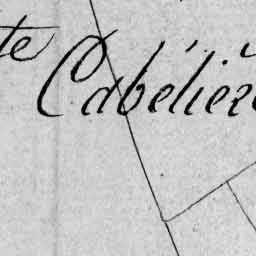 te Cabélièr